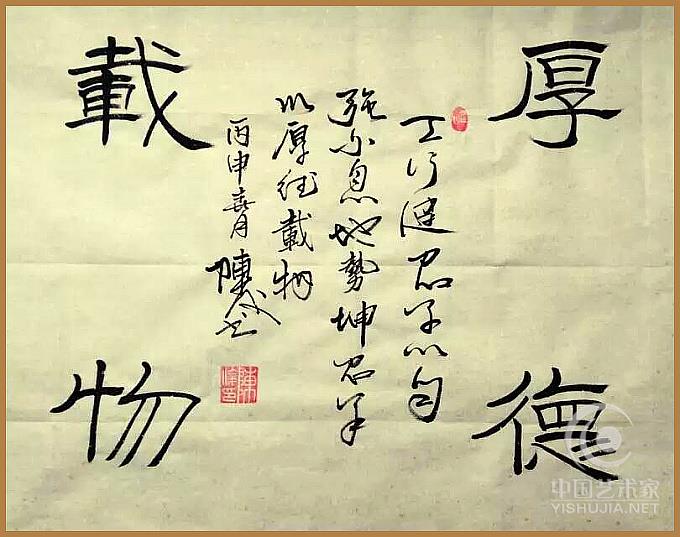 厚德
載物
天行健君子以自
强不息地勢坤君子
以厚德載物
丙申月陳书
中国艺术家
YISHUJIA.NET